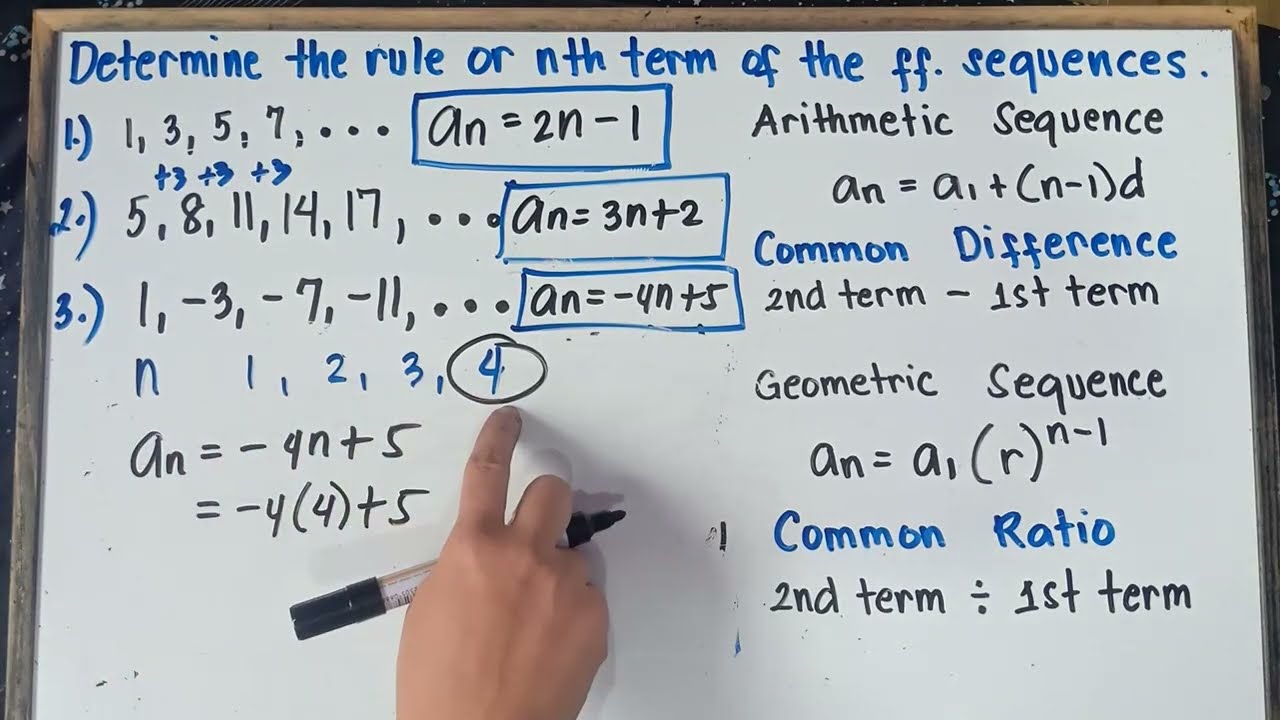 Determine the rule or nth term of the ff. sequences.
1.) 1, 3, 5, 7, ... an = 2n - 1
+3 +3 +3
2.) 5, 8, 11, 14, 17, ... an = 3n+2
3.) 1, -3, -7, -11, ... an = -4n+5
n 1, 2, 3, 4
an = -4n+5
= -4(4)+5
Arithmetic Sequence
an = a1 + (n-1)d
Common Difference
2nd term - 1st term
Geometric Sequence
an = a1 (r)^n-1
Common Ratio
2nd term ÷ 1st term